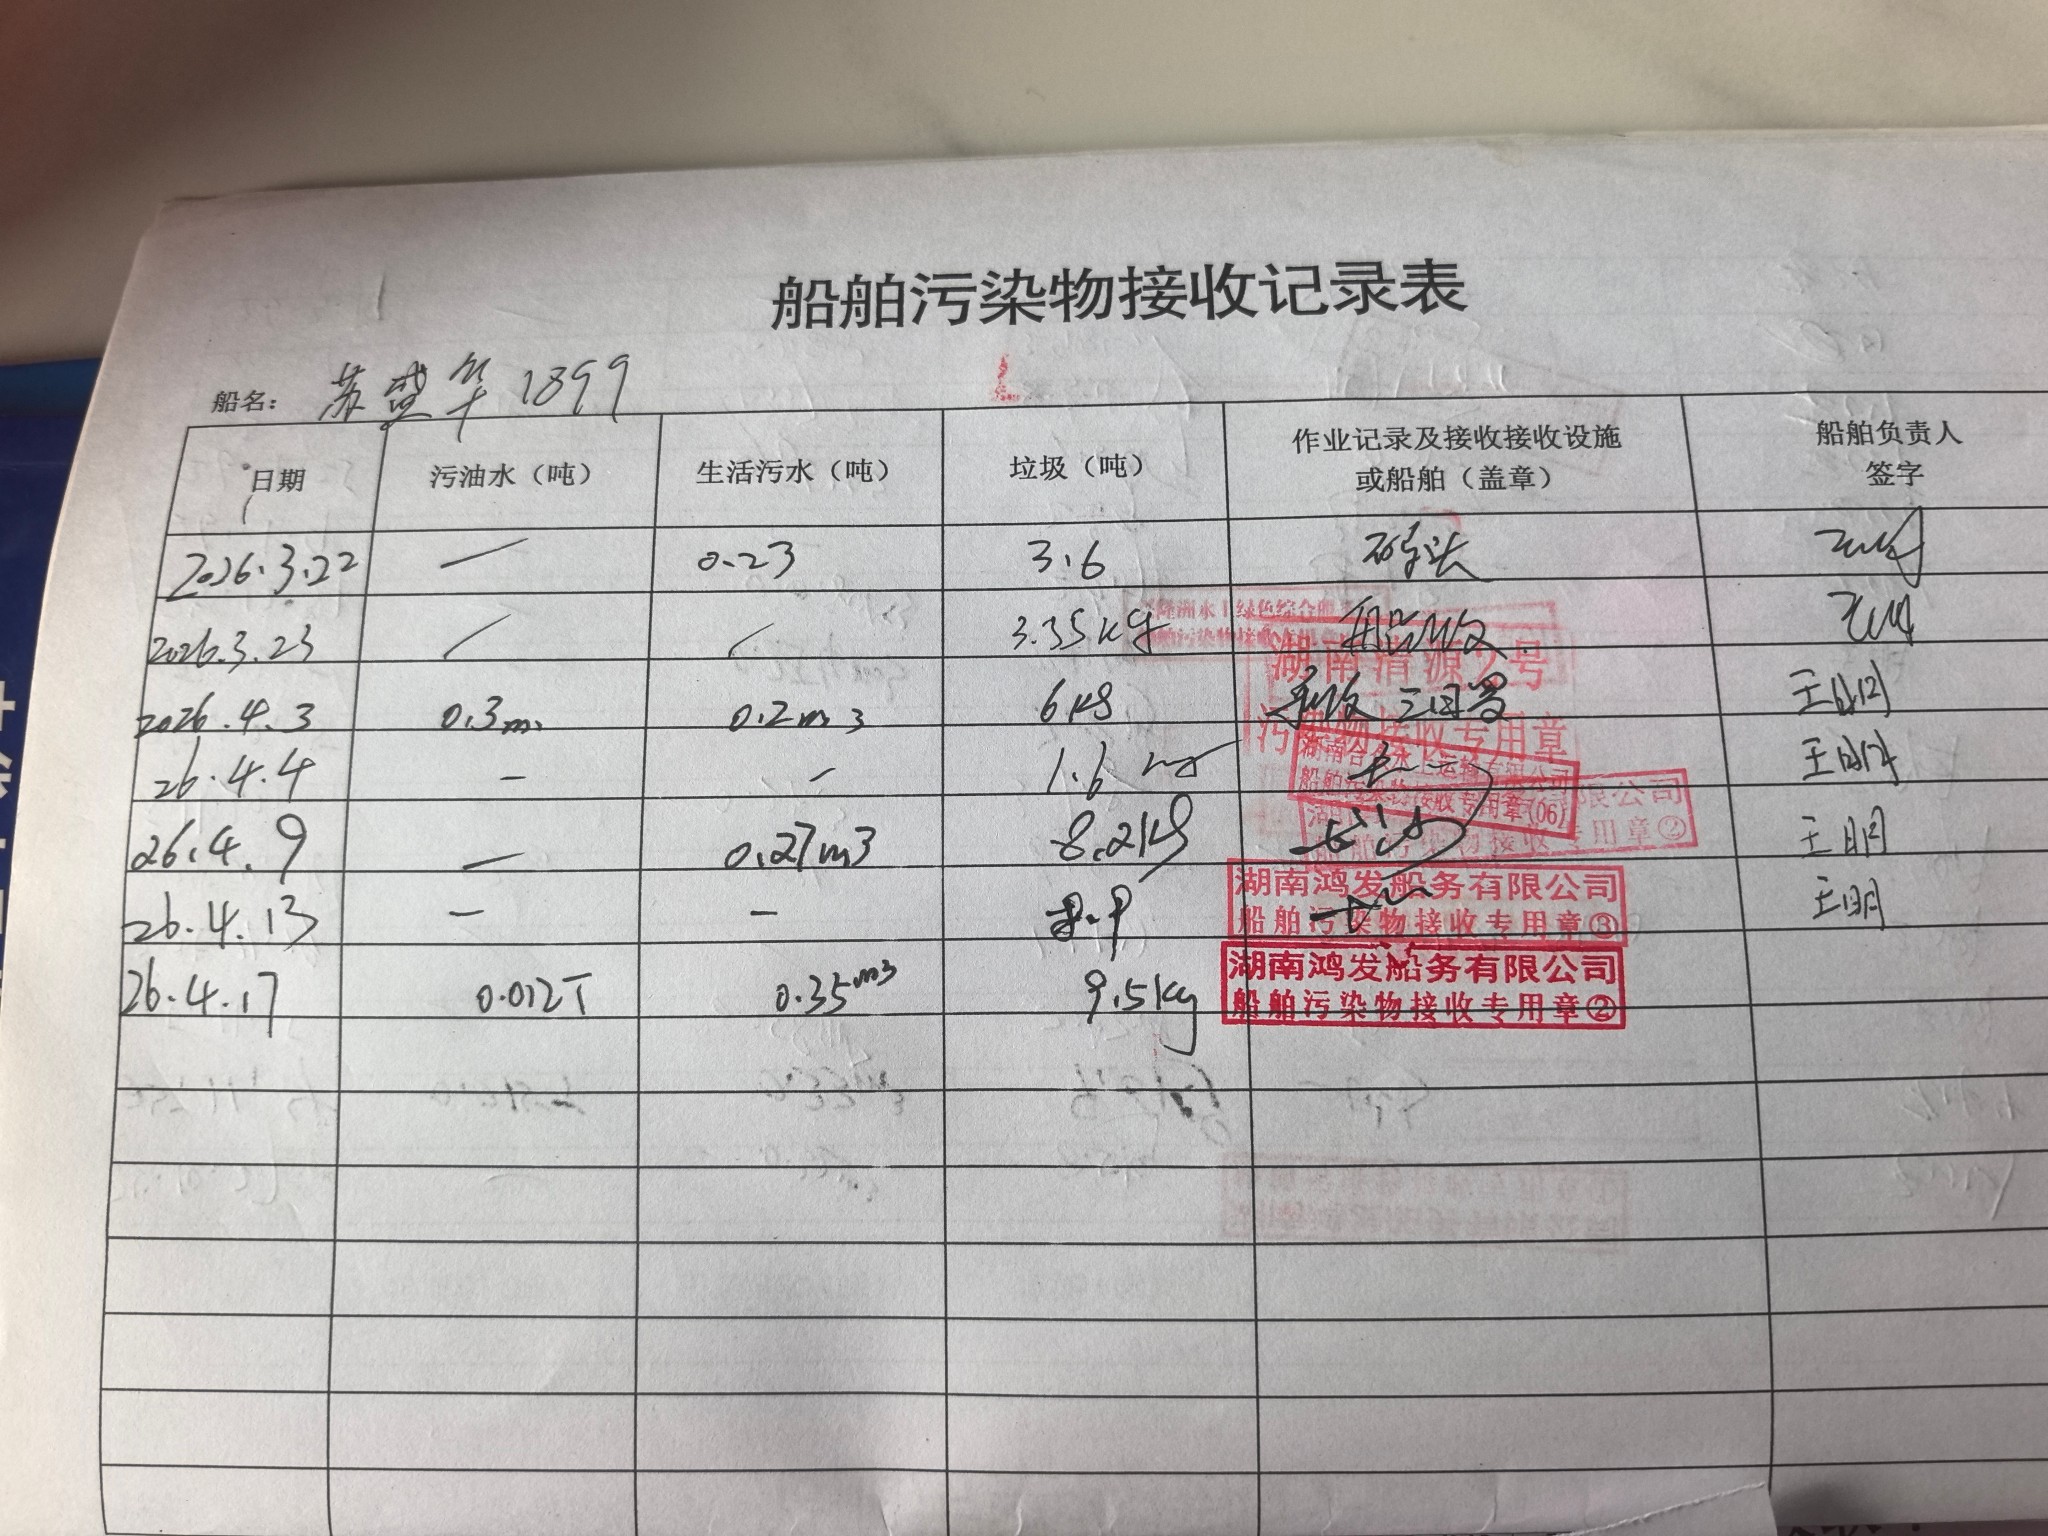 船舶污染物接收记录表
船名: 苏盛华1899
日期 污油水（吨） 生活污水（吨） 垃圾（吨） 作业记录及接收接收设施或船舶（盖章） 船舶负责人签字
2026.3.22 — 0.23 3.6 码头
2026.3.23 / / 3.35kg
2026.4.3 0.3m 0.2m3 6kg 王明
26.4.4 - - 1.6 kg 王明
26.4.9 — 0.27m3 8.2kg 王明
26.4.13 - - 王明
26.4.17 0.012T 0.35m3 9.5kg
湖南清源2号
污染物接收专用章
船舶污染物接收专用章(06)
有限公司
船舶污染物接收专用章②
湖南鸿发船务有限公司
船舶污染物接收专用章③
湖南鸿发船务有限公司
船舶污染物接收专用章②